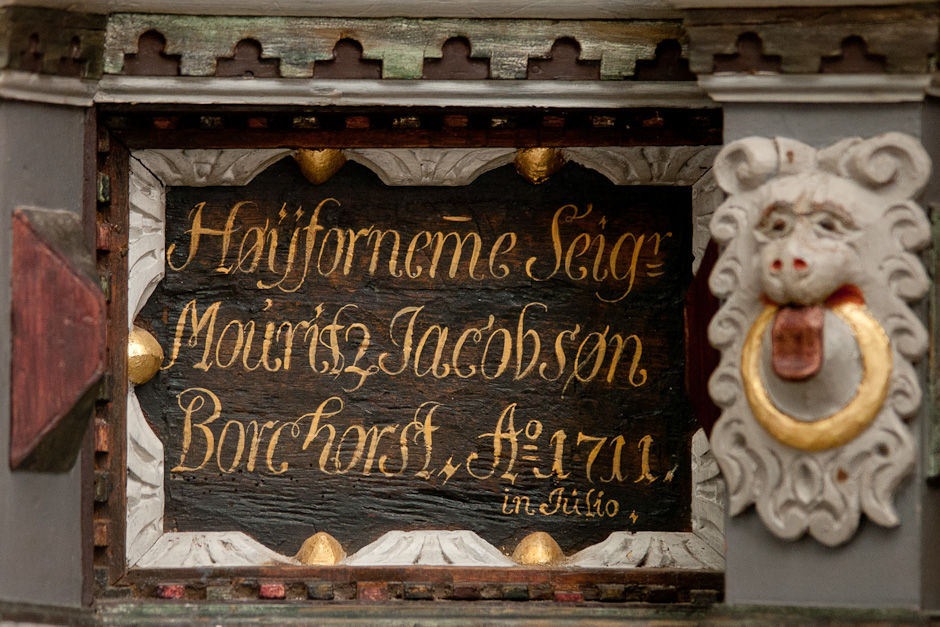 Høÿfornem̄e Seigr
Moúritz Jacobsøn
Borchorst, Ao 1711.
in Júlio,